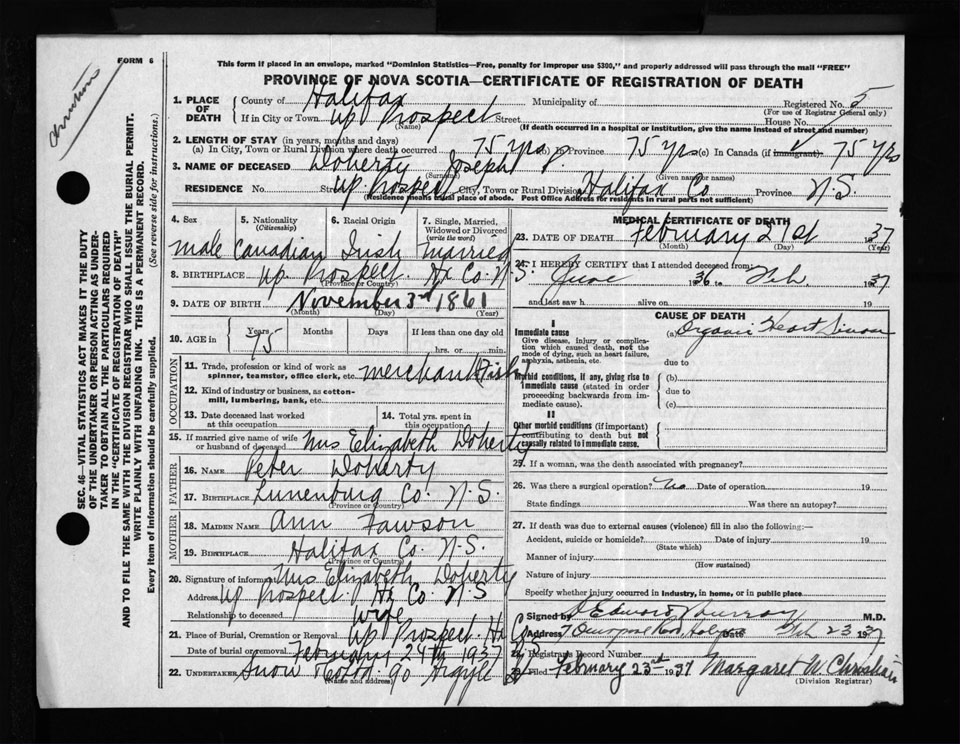 FORM 6
This form if placed in an envelope, marked "Dominion Statistics—Free, penalty for improper use $300," and properly addressed will pass through the mail "FREE"
PROVINCE OF NOVA SCOTIA—CERTIFICATE OF REGISTRATION OF DEATH
SEC. 46—VITAL STATISTICS ACT MAKES IT THE DUTY
OF THE UNDERTAKER OR PERSON ACTING AS UNDER-
TAKER TO OBTAIN ALL THE PARTICULARS REQUIRED
IN THE "CERTIFICATE OF REGISTRATION OF DEATH"
AND TO FILE THE SAME WITH THE DIVISION REGISTRAR WHO SHALL ISSUE THE BURIAL PERMIT.
WRITE PLAINLY WITH UNFADING INK. THIS IS A PERMANENT RECORD.
Every item of information should be carefully supplied. (See reverse side for instructions.)
1. PLACE OF DEATH
County of Halifax Municipality of Registered No. 5
(For use of Registrar General only)
If in City or Town Up Prospect Street House No.
(Name) (If death occurred in a hospital or institution, give the name instead of street and number)
2. LENGTH OF STAY (in years, months and days)
(a) In City, Town or Rural Division where death occurred 75 yrs (b) In Province 75 yrs (c) In Canada (if immigrant) 75 yrs
3. NAME OF DECEASED Doherty Joseph
(Surname) (Given name or names)
RESIDENCE No. Street Up Prospect City, Town or Rural Division Halifax Co Province N.S.
(Residence means usual place of abode. Post Office Address for residents in rural parts not sufficient)
4. Sex 5. Nationality (Citizenship) 6. Racial Origin 7. Single, Married, Widowed or Divorced (write the word)
male Canadian Irish married
8. BIRTHPLACE Up Prospect. Hx Co. N.S.
(Province or Country)
9. DATE OF BIRTH November 3rd 1861
(Month) (Day) (Year)
10. AGE in Years 75 Months Days If less than one day old
hrs. or min.
OCCUPATION
11. Trade, profession or kind of work as spinner, teamster, office clerk, etc. merchant
12. Kind of industry or business, as cotton-mill, lumbering, bank, etc.
13. Date deceased last worked at this occupation 14. Total yrs. spent in this occupation
15. If married give name of wife or husband of deceased Mrs Elizabeth Doherty
FATHER
16. NAME Peter Doherty
17. BIRTHPLACE Lunenburg Co. N.S.
(Province or Country)
MOTHER
18. MAIDEN NAME Ann Fawson
19. BIRTHPLACE Halifax Co. N.S.
(Province or Country)
20. Signature of informant Mrs Elizabeth Doherty
Address Up Prospect. Hx Co N.S
Relationship to deceased wife
21. Place of Burial, Cremation or Removal Up Prospect. Hx Co
Date of burial or removal February 24th 1937
22. UNDERTAKER Snow 90 Argyle St
(Name and address)
MEDICAL CERTIFICATE OF DEATH
23. DATE OF DEATH February 21st 1937
(Month) (Day) (Year)
24. I HEREBY CERTIFY that I attended deceased from
June 1936 to Feb. 1937
and last saw h alive on 19
CAUSE OF DEATH
I
Immediate cause (a) Organic Heart Disease
Give disease, injury or complication which caused death, not the mode of dying, such as heart failure, asphyxia, asthenia, etc.
due to
Morbid conditions, if any, giving rise to immediate cause (stated in order proceeding backwards from immediate cause).
(b)
due to
(c)
II
Other morbid conditions (if important) contributing to death but not causally related to immediate cause.
25. If a woman, was the death associated with pregnancy?
26. Was there a surgical operation? No Date of operation 19
State findings Was there an autopsy?
27. If death was due to external causes (violence) fill in also the following:—
Accident, suicide or homicide? Date of injury 19
(State which)
Manner of injury
(How sustained)
Nature of injury
Specify whether injury occurred in Industry, in home, or in public place
Signed by Edward Murray M.D.
Address Date Feb 23 1937
Registrar's Record Number
Filed February 23rd 1937 Margaret W. Christian
(Division Registrar)